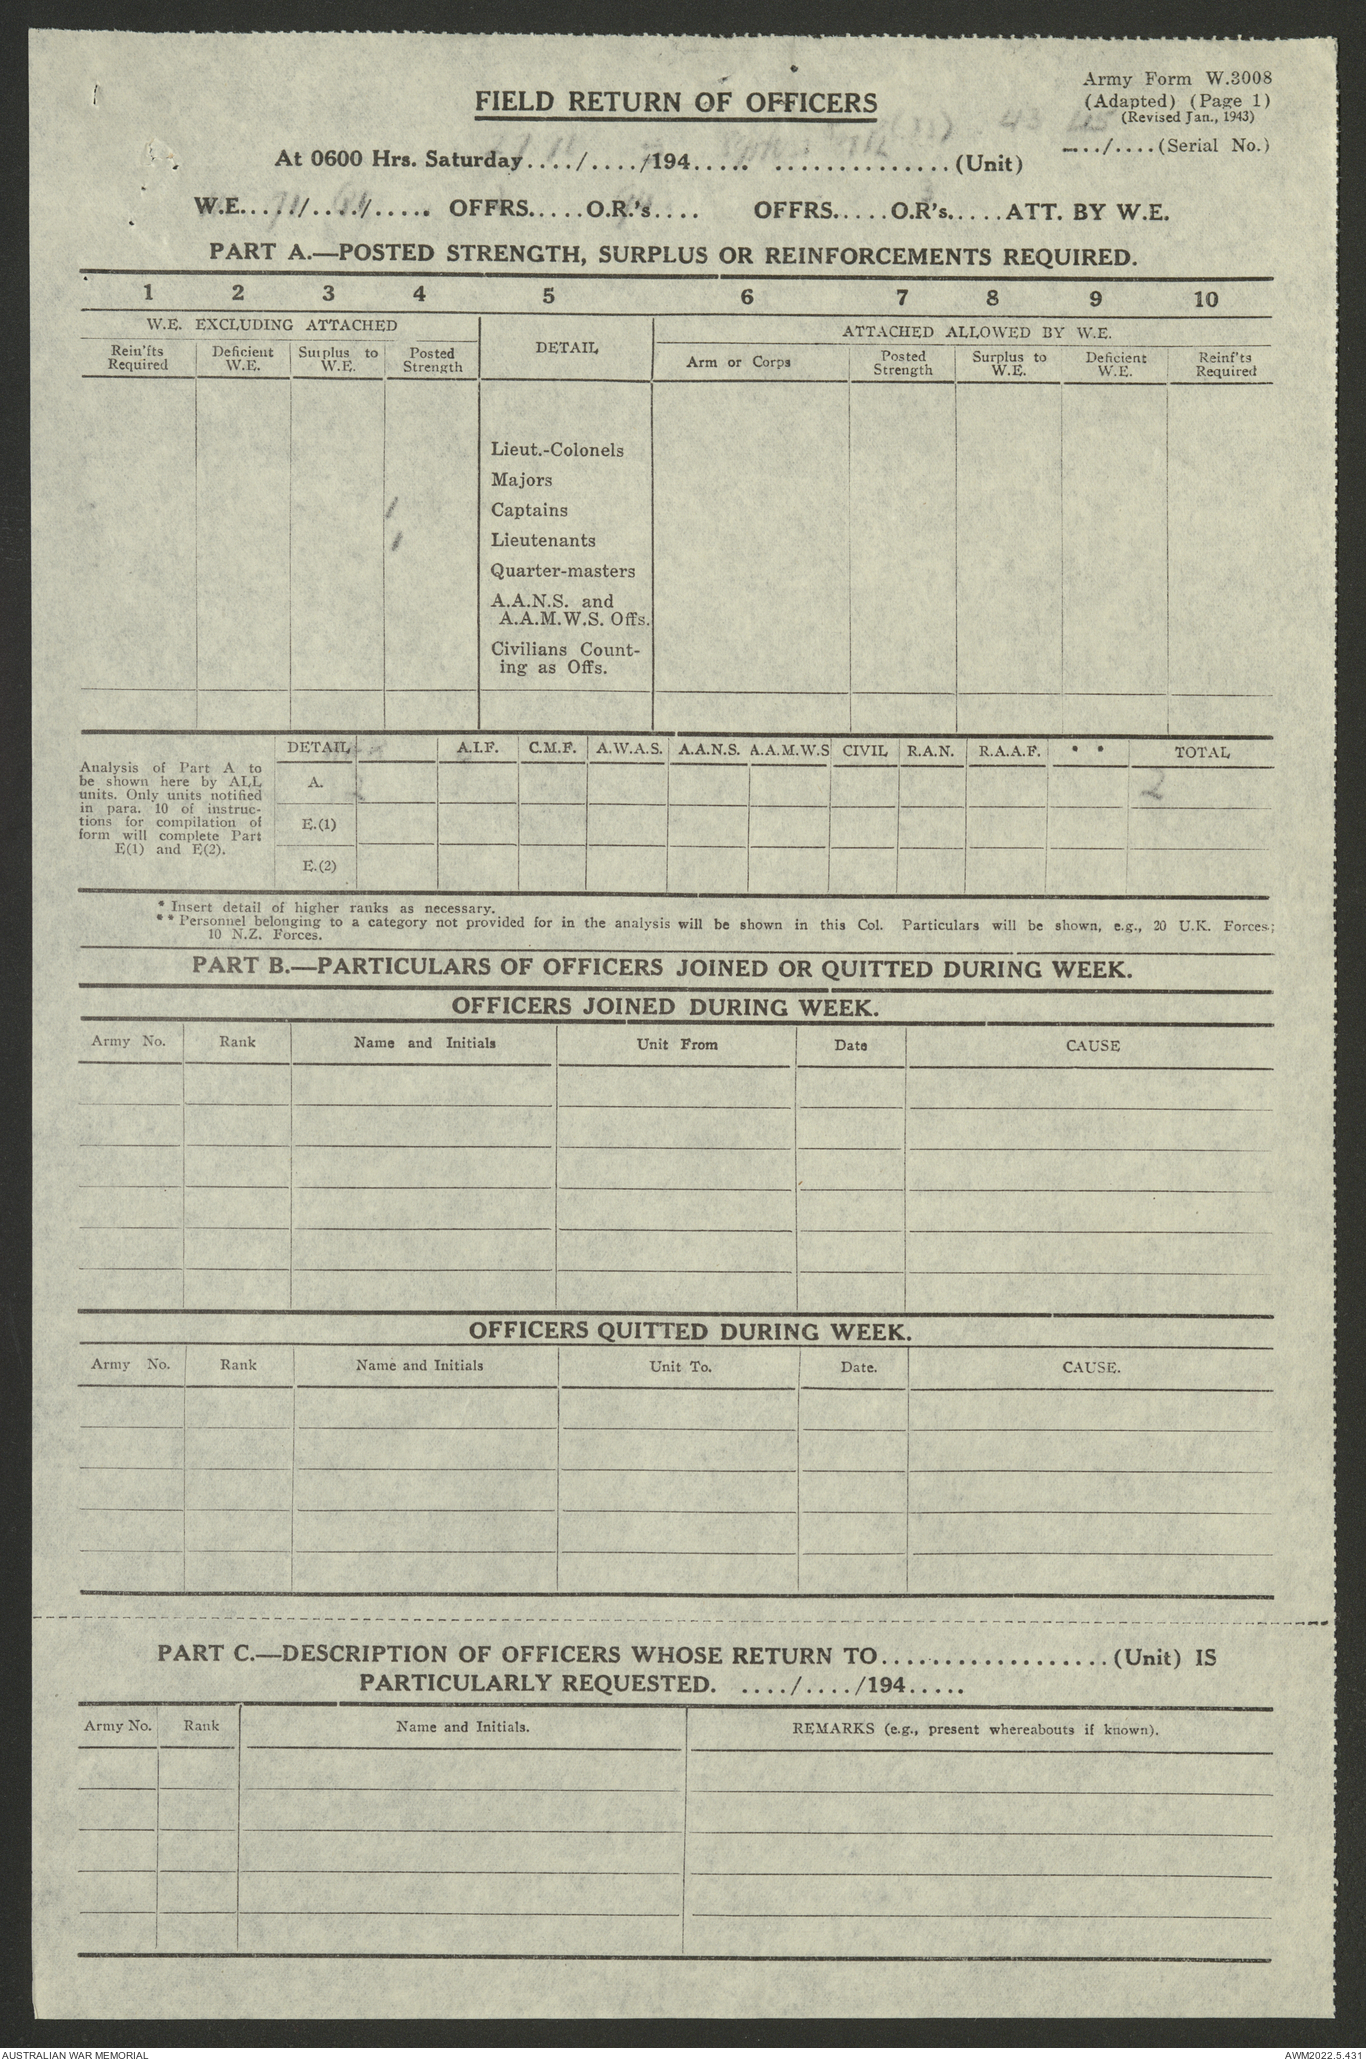 Army Form W.3008
FIELD RETURN OF OFFICERS
(Adapted) (Page 1)
(Revised Jan., 1943)
..../....(Serial No.)
At 0600 Hrs. Saturday..../..../194..... ...............(Unit)
W.E...../..../..... OFFRS.....O.R.'s.... OFFRS.....O.R's.....ATT. BY W.E.
PART A.—POSTED STRENGTH, SURPLUS OR REINFORCEMENTS REQUIRED.
1 2 3 4 5 6 7 8 9 10
W.E. EXCLUDING ATTACHED DETAIL ATTACHED ALLOWED BY W.E.
Rein'fts Required Deficient W.E. Surplus to W.E. Posted Strength Arm or Corps Posted Strength Surplus to W.E. Deficient W.E. Reinf'ts Required
Lieut.-Colonels
Majors
1 Captains
1 Lieutenants
Quarter-masters
A.A.N.S. and
A.A.M.W.S. Offs.
Civilians Count-
ing as Offs.
DETAIL A.I.F. C.M.F. A.W.A.S. A.A.N.S. A.A.M.W.S CIVIL R.A.N. R.A.A.F. * * TOTAL
Analysis of Part A to
be shown here by ALL
units. Only units notified
in para. 10 of instruc-
tions for compilation of
form will complete Part
E(1) and E(2).
A. 2 2
E.(1)
E.(2)
* Insert detail of higher ranks as necessary.
* * Personnel belonging to a category not provided for in the analysis will be shown in this Col. Particulars will be shown, e.g., 20 U.K. Forces;
10 N.Z. Forces.
PART B.—PARTICULARS OF OFFICERS JOINED OR QUITTED DURING WEEK.
OFFICERS JOINED DURING WEEK.
Army No. Rank Name and Initials Unit From Date CAUSE
OFFICERS QUITTED DURING WEEK.
Army No. Rank Name and Initials Unit To. Date. CAUSE.
PART C.—DESCRIPTION OF OFFICERS WHOSE RETURN TO..................(Unit) IS
PARTICULARLY REQUESTED. ..../..../194.....
Army No. Rank Name and Initials. REMARKS (e.g., present whereabouts if known).
AUSTRALIAN WAR MEMORIAL AWM2022.5.431